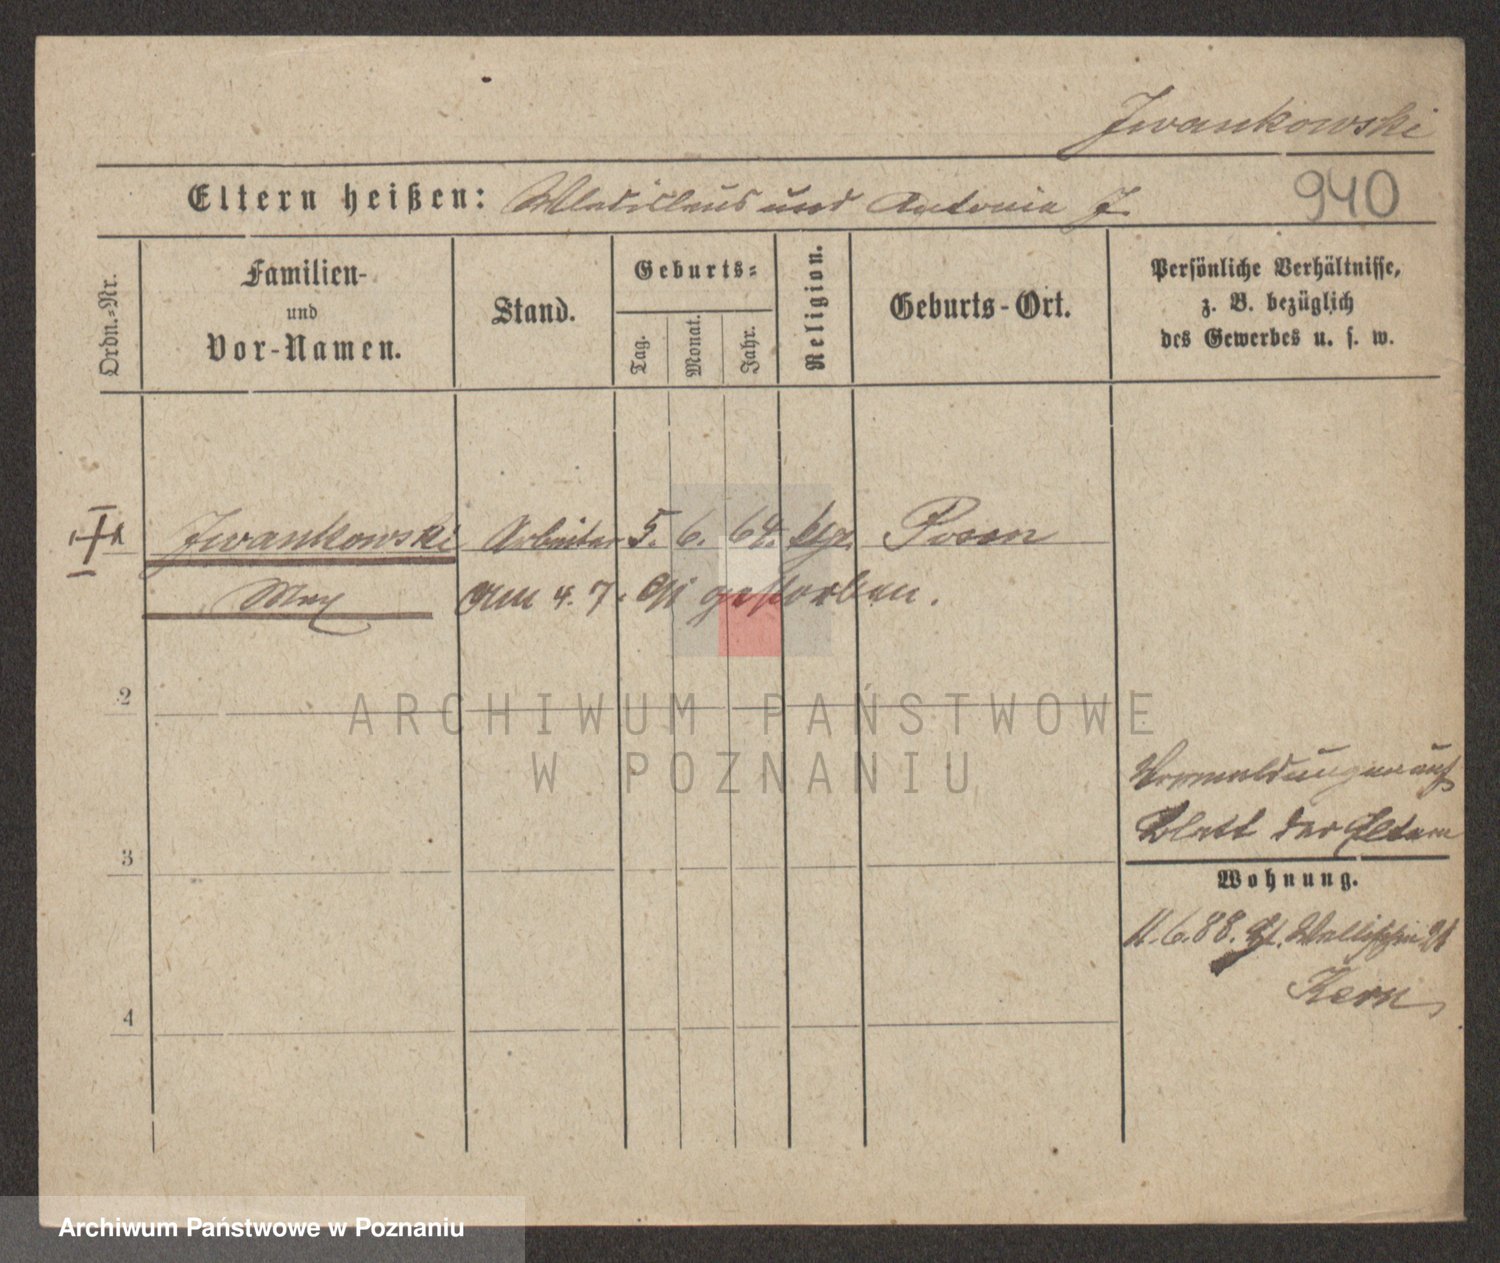 Iwankowski
Eltern heißen: Wladislaus und Antonia J.
940
Ordn.-Nr.
Familien-
und
Vor-Namen.
Stand.
Geburts-
Tag.
Monat.
Jahr.
Religion.
Geburts-Ort.
Persönliche Verhältnisse,
z. B. bezüglich
des Gewerbes u. s. w.
Iwankowski Arbeiter 5. 6. 64. ktp. Posen
Max am 4. 7. gestorben.
2
ARCHIWUM PAŃSTWOWE
W POZNANIU
auf
3
Blatt der Eltern
Wohnung.
11.6.88. Wallischei
Kern
4
Archiwum Państwowe w Poznaniu